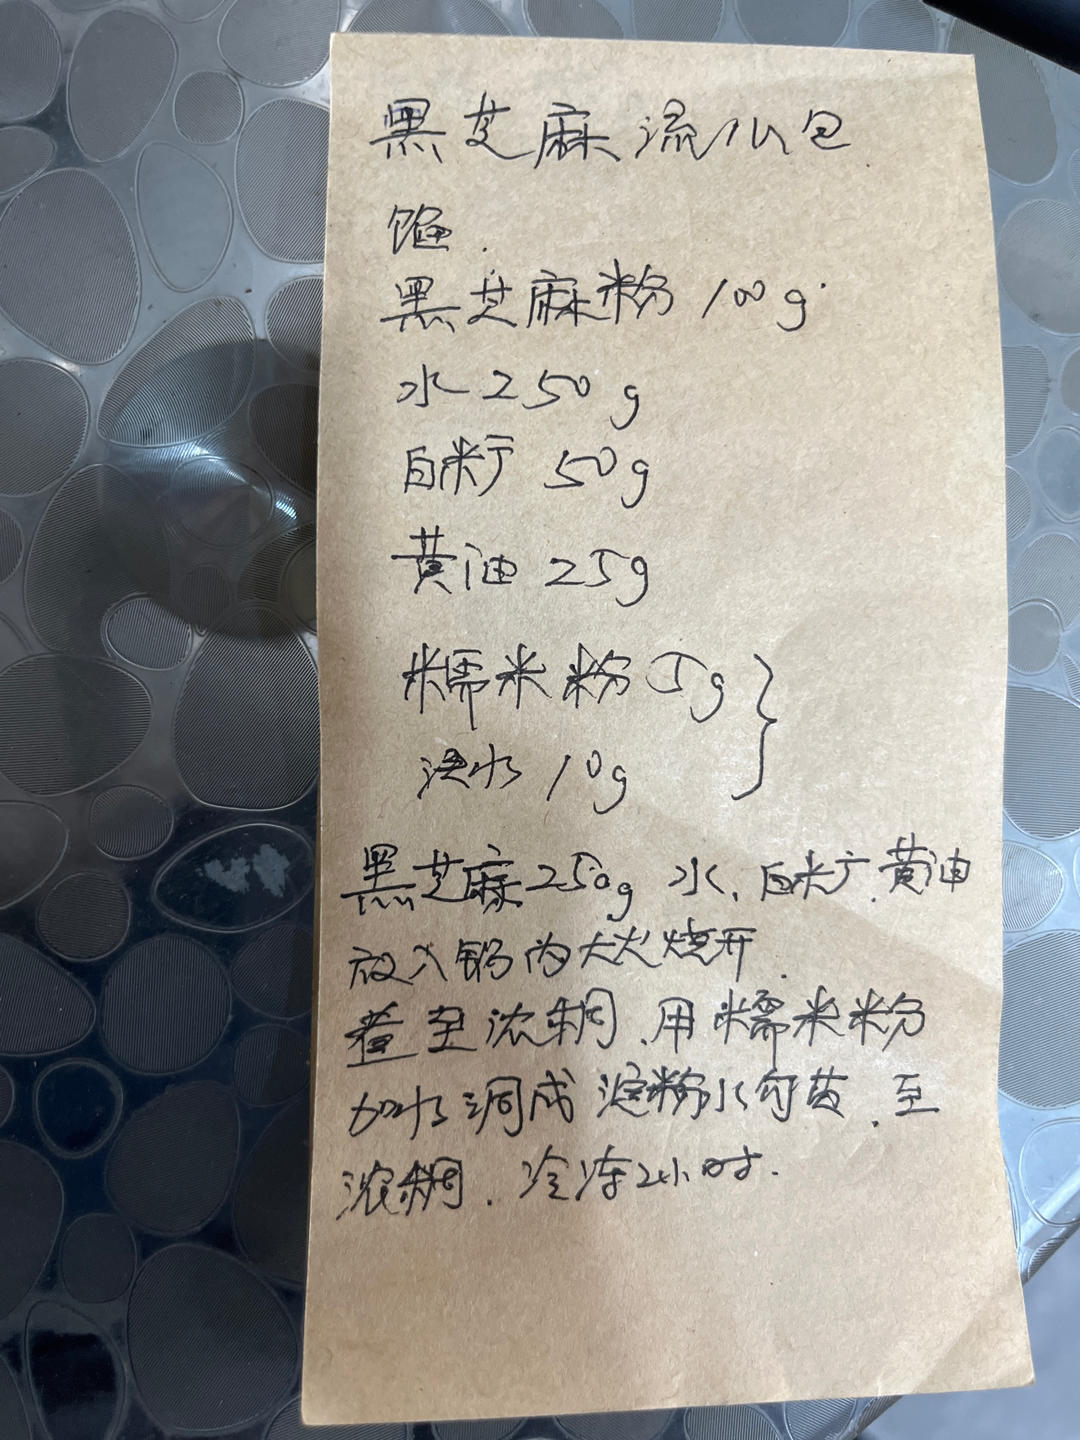 黑芝麻流心包
馅.
黑芝麻粉 100g.
水250g
白米广 50g
黄油 25g
糯米粉 5g
浇水 10g
黑芝麻250g 水、白米广.黄油
放入锅内大火烧开.
煮至浓稠.用糯米粉
加水调成淀粉水勾芡.至
浓稠.冷冻2小时.